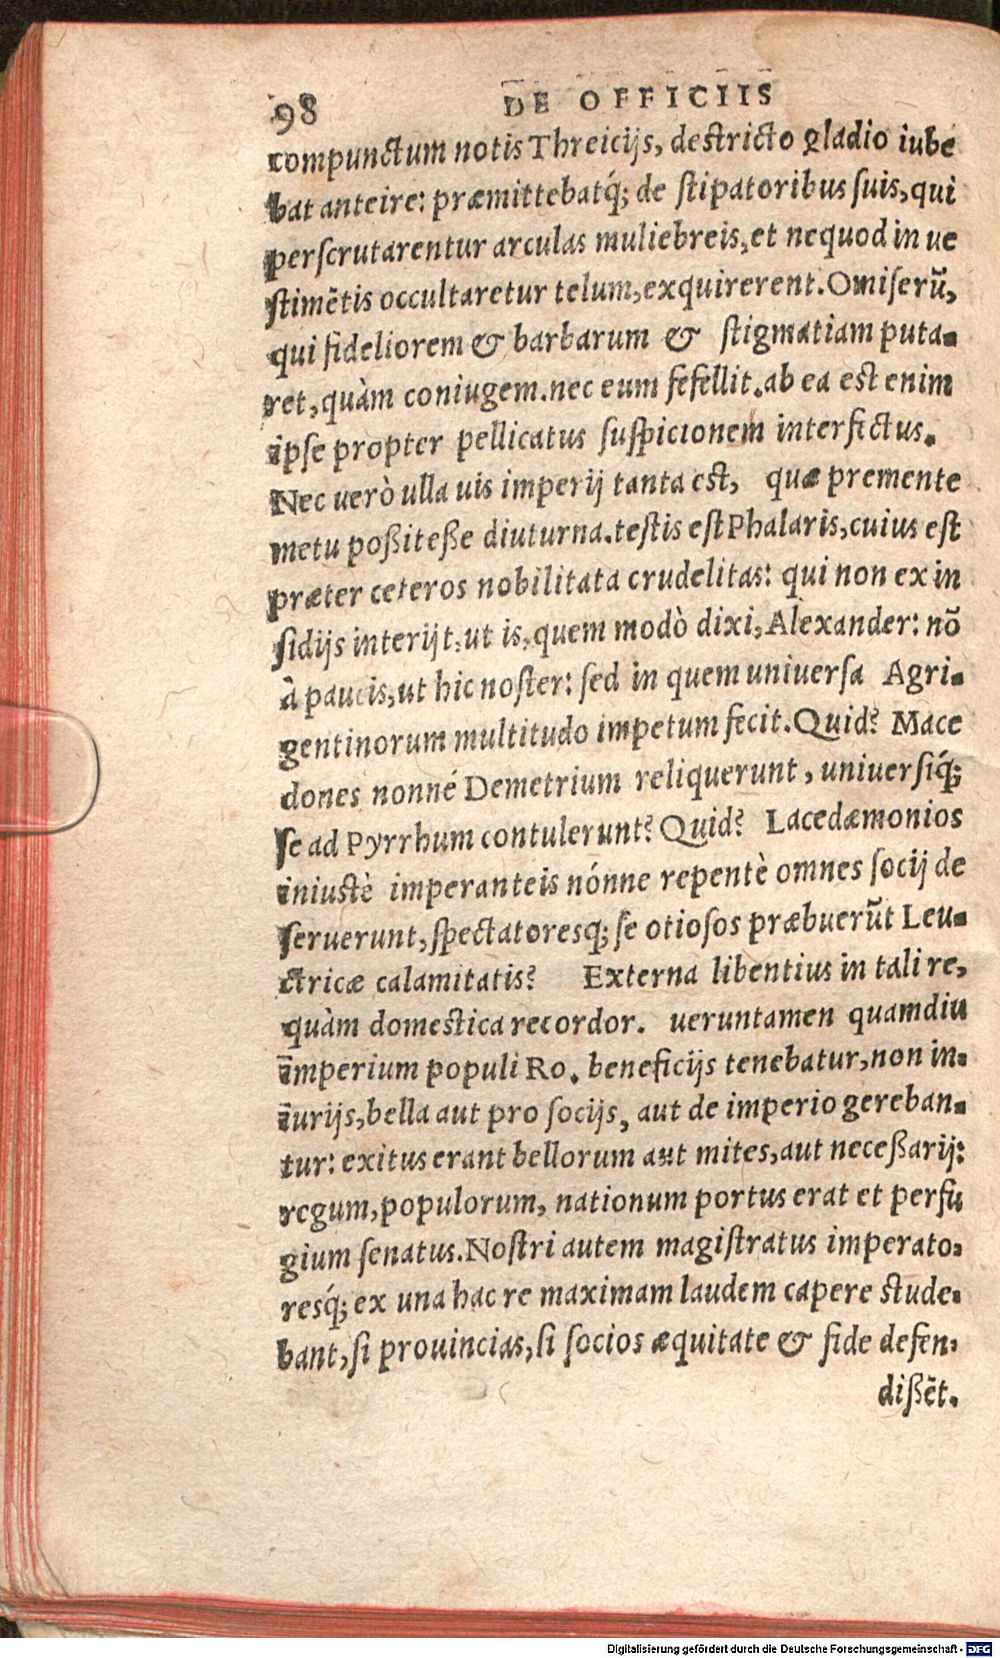 98 DE OFFICIIS
compunctum notis Threicijs, destricto gladio iube
bat anteire: præmittebatq́; de stipatoribus suis, qui
perscrutarentur arculas muliebreis, et nequod in ue
stimẽtis occultaretur telum, exquirerent. O miserũ,
qui fideliorem & barbarum & stigmatiam puta-
ret, quàm coniugem. nec eum fefellit. ab ea est enim
ipse propter pellicatus suspicionem interfictus.
Nec uerò ulla uis imperij tanta est, quæ premente
metu poßit eße diuturna. testis est Phalaris, cuius est
præter ceteros nobilitata crudelitas: qui non ex in
sidijs interijt, ut is, quem modò dixi, Alexander: nõ
à paucis, ut hic noster: sed in quem uniuersa Agri-
gentinorum multitudo impetum fecit. Quid? Mace
dones nonné Demetrium reliquerunt, uniuersiq́;
se ad Pyrrhum contulerunt? Quid? Lacedæmonios
iniustè imperanteis nónne repentè omnes socij de
seruerunt, spectatoresq; se otiosos præbuerũt Leu-
ctricæ calamitatis? Externa libentius in tali re,
quàm domestica recordor. ueruntamen quamdiu
imperium populi Ro. beneficijs tenebatur, non in-
iurijs, bella aut pro socijs, aut de imperio gereban-
tur: exitus erant bellorum aut mites, aut neceßarij:
regum, populorum, nationum portus erat et perfu
gium senatus. Nostri autem magistratus imperato-
resq́; ex una hac re maximam laudem capere stude-
bant, si prouincias, si socios æquitate & fide defen-
dißẽt.
Digitalisierung gefördert durch die Deutsche Forschungsgemeinschaft - DFG